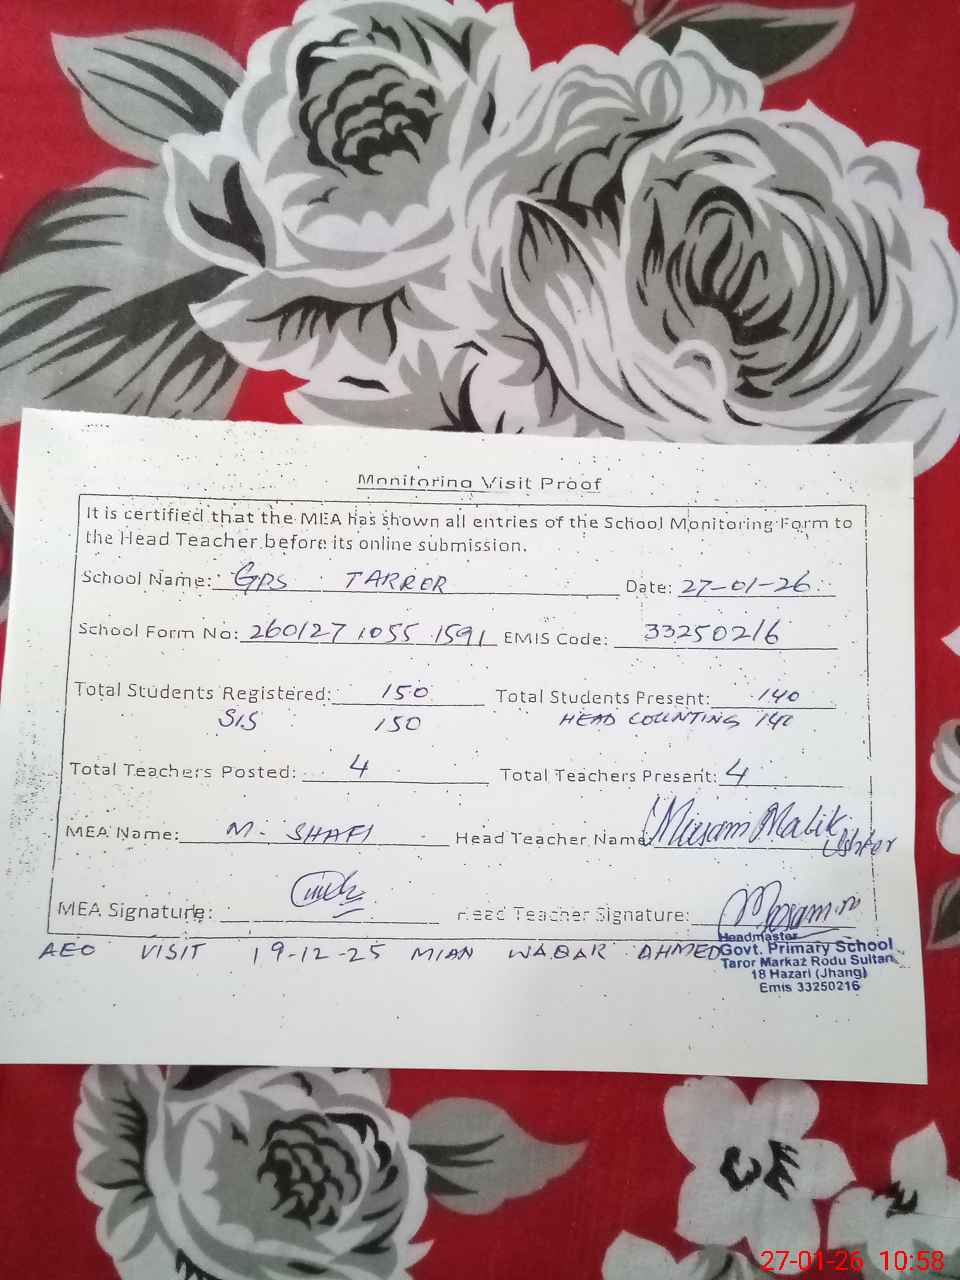 Monitoring Visit Proof
It is certified that the MEA has shown all entries of the School Monitoring Form to
the Head Teacher before its online submission.
School Name: GPS TARROR Date: 27-01-26
School Form No: 260127 1055 1591 EMIS Code: 33250216
Total Students Registered: 150 Total Students Present: 140
SIS 150 HEAD COUNTING 140
Total Teachers Posted: 4 Total Teachers Present: 4
MEA Name: M. SHAFI Head Teacher Name: Malik
MEA Signature: Head Teacher Signature:
AEO VISIT 19-12-25 MIAN WAQAR AHMED
Headmaster
Govt. Primary School
Taror Markaz Rodu Sultan
18 Hazari (Jhang)
Emis 33250216
27-01-26 10:58